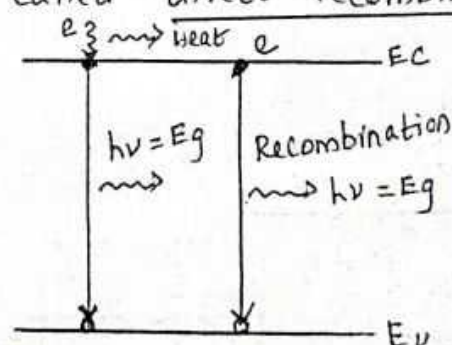 called direct
e Heat e
EC
hν = Eg Recombination
hν = Eg
Ev